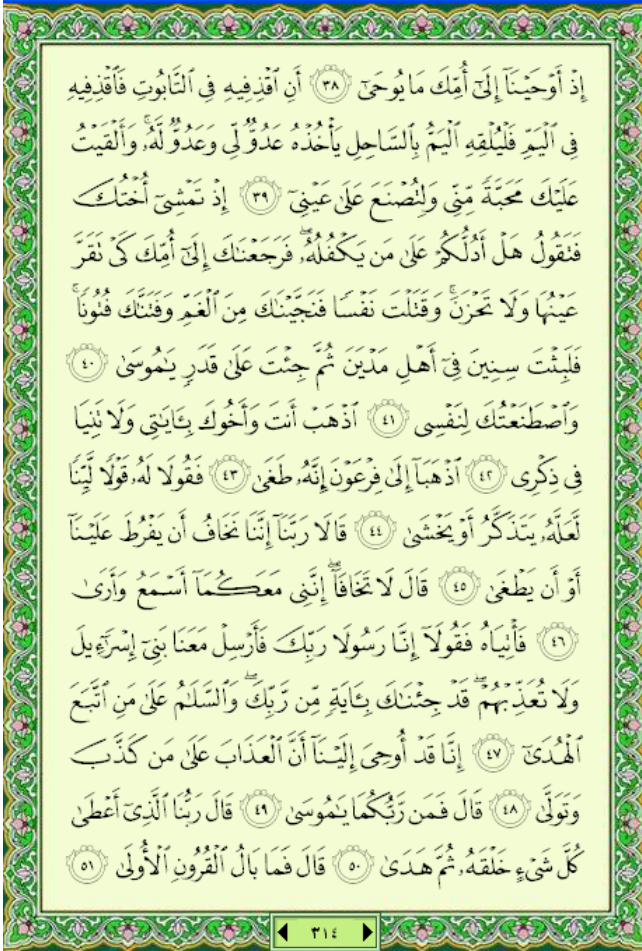 إِذْ أَوْحَيْنَآ إِلَىٰٓ أُمِّكَ مَا يُوحَىٰٓ ٣٨ أَنِ ٱقْذِفِيهِ فِى ٱلتَّابُوتِ فَٱقْذِفِيهِ
فِى ٱلْيَمِّ فَلْيُلْقِهِ ٱلْيَمُّ بِٱلسَّاحِلِ يَأْخُذْهُ عَدُوٌّ لِّى وَعَدُوٌّ لَّهُۥ ۚ وَأَلْقَيْتُ
عَلَيْكَ مَحَبَّةً مِّنِّى وَلِتُصْنَعَ عَلَىٰ عَيْنِىٓ ٣٩ إِذْ تَمْشِىٓ أُخْتُكَ
فَتَقُولُ هَلْ أَدُلُّكُمْ عَلَىٰ مَن يَكْفُلُهُۥ ۖ فَرَجَعْنَـٰكَ إِلَىٰٓ أُمِّكَ كَىْ تَقَرَّ
عَيْنُهَا وَلَا تَحْزَنَ ۚ وَقَتَلْتَ نَفْسًا فَنَجَّيْنَـٰكَ مِنَ ٱلْغَمِّ وَفَتَنَّـٰكَ فُتُونًا ۚ
فَلَبِثْتَ سِنِينَ فِىٓ أَهْلِ مَدْيَنَ ثُمَّ جِئْتَ عَلَىٰ قَدَرٍ يَـٰمُوسَىٰ ٤٠
وَٱصْطَنَعْتُكَ لِنَفْسِى ٤١ ٱذْهَبْ أَنتَ وَأَخُوكَ بِـَٔايَـٰتِى وَلَا تَنِيَا
فِى ذِكْرِى ٤٢ ٱذْهَبَآ إِلَىٰ فِرْعَوْنَ إِنَّهُۥ طَغَىٰ ٤٣ فَقُولَا لَهُۥ قَوْلًا لَّيِّنًا
لَّعَلَّهُۥ يَتَذَكَّرُ أَوْ يَخْشَىٰ ٤٤ قَالَا رَبَّنَآ إِنَّنَا نَخَافُ أَن يَفْرُطَ عَلَيْنَآ
أَوْ أَن يَطْغَىٰ ٤٥ قَالَ لَا تَخَافَآ ۖ إِنَّنِى مَعَكُمَآ أَسْمَعُ وَأَرَىٰ
٤٦ فَأْتِيَاهُ فَقُولَآ إِنَّا رَسُولَا رَبِّكَ فَأَرْسِلْ مَعَنَا بَنِىٓ إِسْرَٰٓءِيلَ
وَلَا تُعَذِّبْهُمْ ۖ قَدْ جِئْنَـٰكَ بِـَٔايَةٍ مِّن رَّبِّكَ ۖ وَٱلسَّلَـٰمُ عَلَىٰ مَنِ ٱتَّبَعَ
ٱلْهُدَىٰٓ ٤٧ إِنَّا قَدْ أُوحِىَ إِلَيْنَآ أَنَّ ٱلْعَذَابَ عَلَىٰ مَن كَذَّبَ
وَتَوَلَّىٰ ٤٨ قَالَ فَمَن رَّبُّكُمَا يَـٰمُوسَىٰ ٤٩ قَالَ رَبُّنَا ٱلَّذِىٓ أَعْطَىٰ
كُلَّ شَىْءٍ خَلْقَهُۥ ثُمَّ هَدَىٰ ٥٠ قَالَ فَمَا بَالُ ٱلْقُرُونِ ٱلْأُولَىٰ ٥١
٣١٤